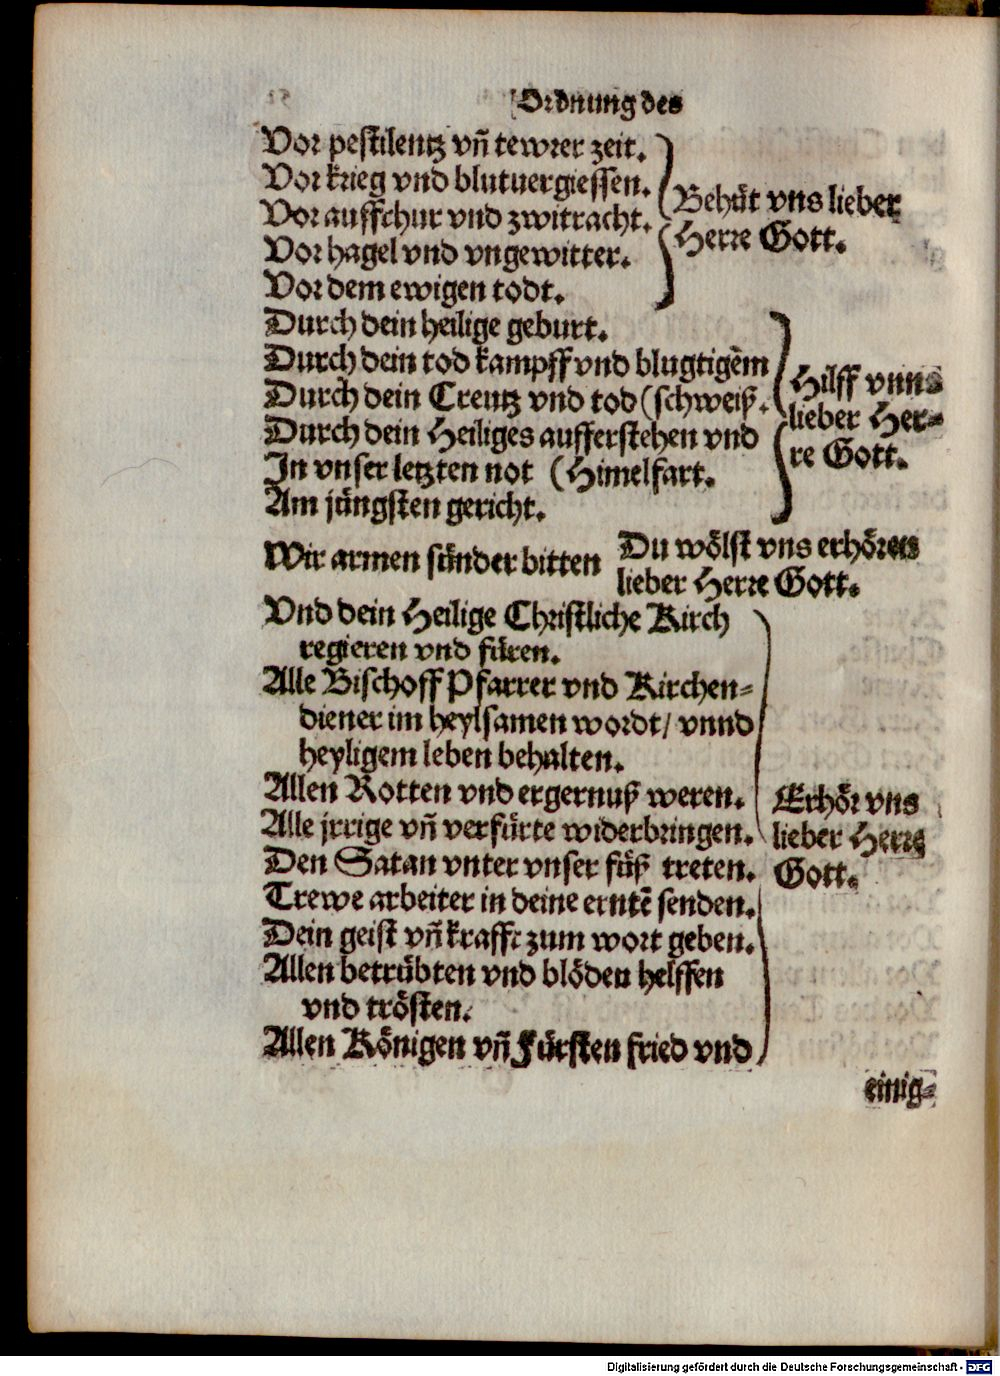 Ordnung des
Vor pestilentz vñ tewrer zeit.
Vor krieg vnd blutuergiessen.
Vor auffrhur vnd zwitracht.
Vor hagel vnd vngewitter.
Vor dem ewigen todt.
Behüt vns lieber
Herre Gott.
Durch dein heilige geburt.
Durch dein tod kampff vnd blugtigẽm
Durch dein Creutz vnd tod (schweiß.
Durch dein Heiliges aufferstehen vnd
In vnser letzten not (Himelfart.
Am jüngsten gericht.
Hilff vnns
lieber Her-
re Gott.
Wir armen sünder bitten
Du wölst vns erhören
lieber Herre Gott.
Vnd dein Heilige Christliche Kirch
regieren vnd füren.
Alle Bischoff Pfarrer vnd Kirchen-
diener im heylsamen wordt/ vnnd
heyligem leben behalten.
Allen Rotten vnd ergernuß weren.
Alle jrrige vñ verfürte widerbringen.
Den Satan vnter vnser füß treten.
Trewe arbeiter in deine erntẽ senden.
Dein geist vñ krafft zum wort geben.
Allen betrübten vnd blöden helffen
vnd trösten.
Allen Königen vñ Fürsten fried vnd
Erhör vns
lieber Herre
Gott.
einig-
Digitalisierung gefördert durch die Deutsche Forschungsgemeinschaft - DFG